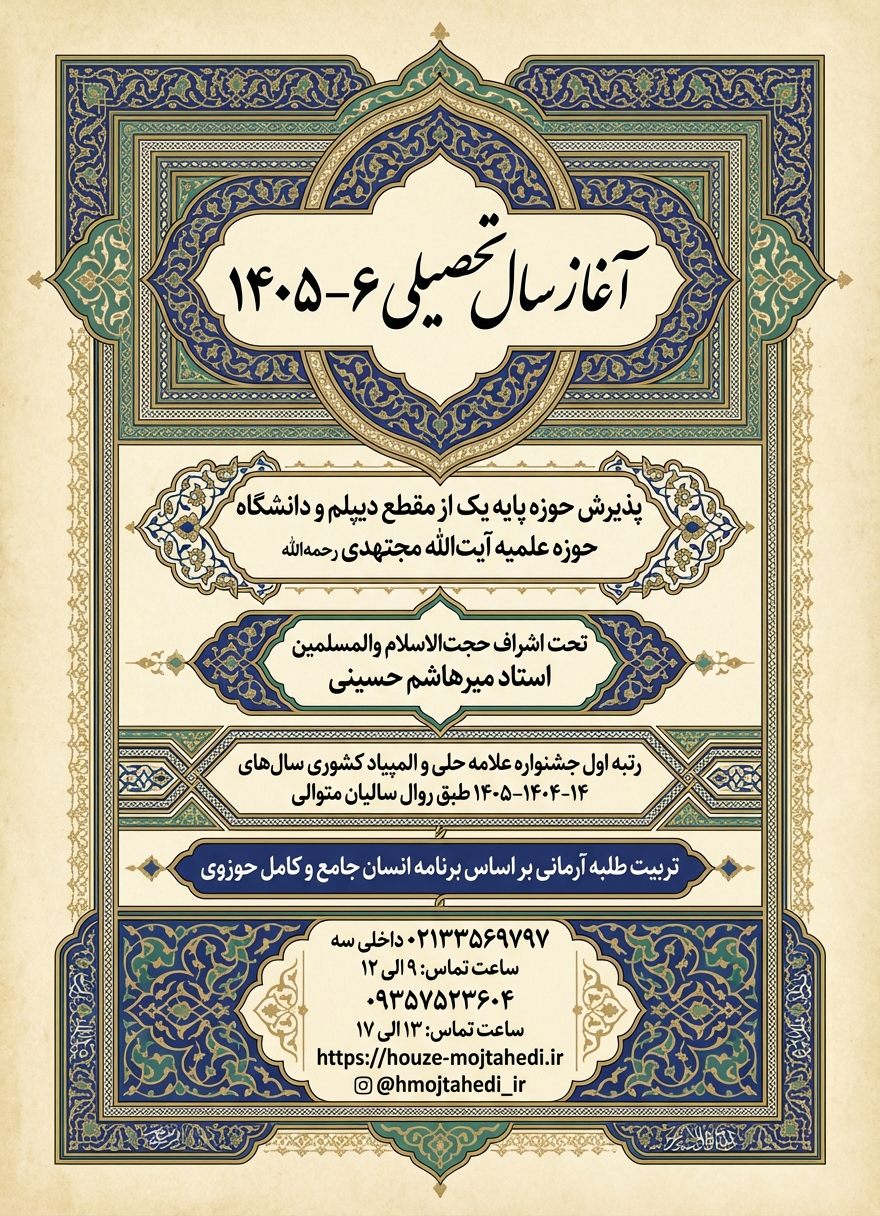 آغاز سال تحصیلی ۶-۱۴۰۵
پذیرش حوزه پایه یک از مقطع دیپلم و دانشگاه
حوزه علمیه آیت‌الله مجتهدی رحمه‌الله
تحت اشراف حجت‌الاسلام والمسلمین
استاد میرهاشم حسینی
رتبه اول جشنواره علامه حلی و المپیاد کشوری سال‌های
۱۴-۱۴۰۴-۱۴۰۵ طبق روال سالیان متوالی
تربیت طلبه آرمانی بر اساس برنامه انسان جامع و کامل حوزوی
۰۲۱۳۳۵۶۹۷۹۷ داخلی سه
ساعت تماس: ۹ الی ۱۲
۰۹۳۵۷۵۲۳۶۰۴
ساعت تماس: ۱۳ الی ۱۷
https://houze-mojtahedi.ir
@hmojtahedi_ir